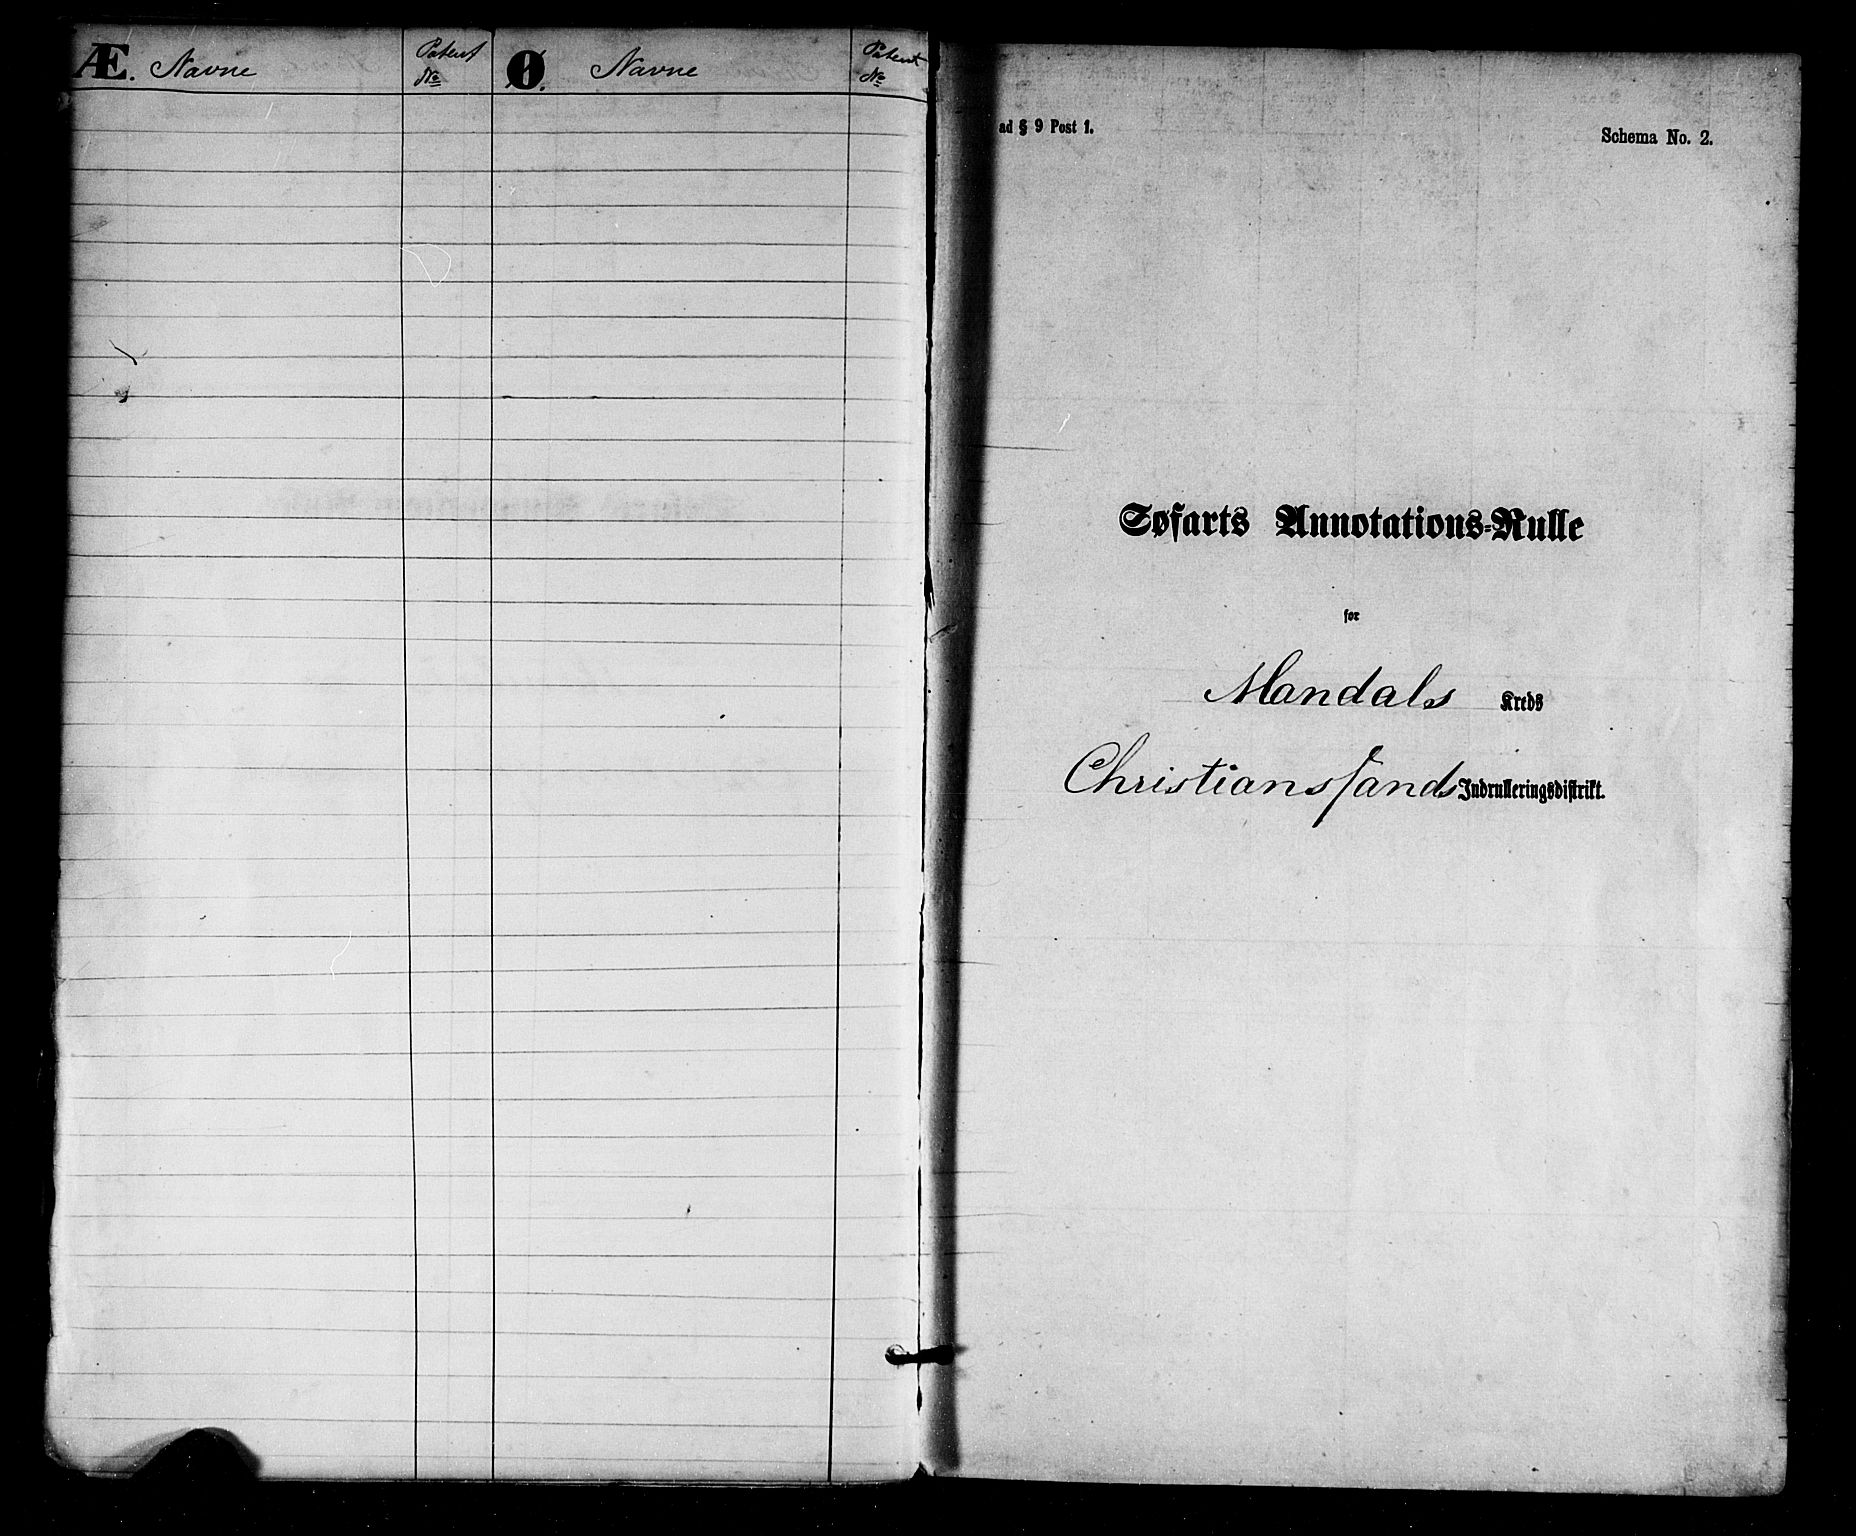 Æ. Navne Patent Ø. Navne Patent
No No
ad § 9 Post 1. Schema No. 2.
Søfarts Annotations=Rulle
for
Mandals Kreds
Christianssands Indrulleringsdistrikt.